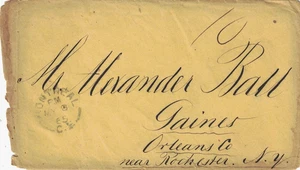 10
Mr Alexander Ball
Gaines
Orleans Co
near Rochester. N.Y.
MONTREAL
C.E.